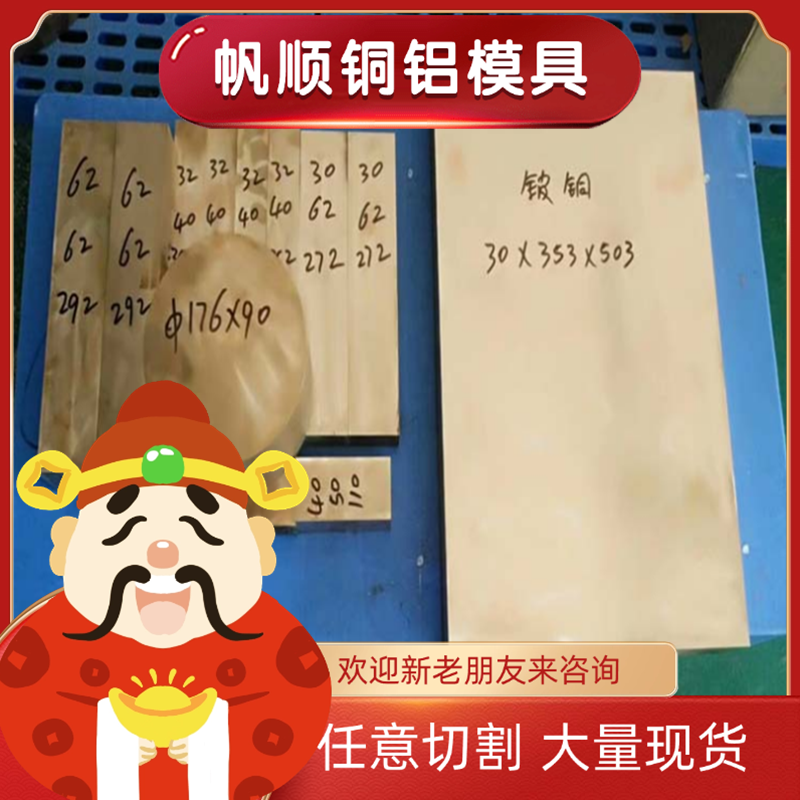 帆顺铜铝模具
62 62 32 32 32 32 30 30
40 40 40 40 62 62
62 62 272 272
292 292
φ176×90
40
50
110
铍铜
30×353×503
欢迎新老朋友来咨询
任意切割 大量现货